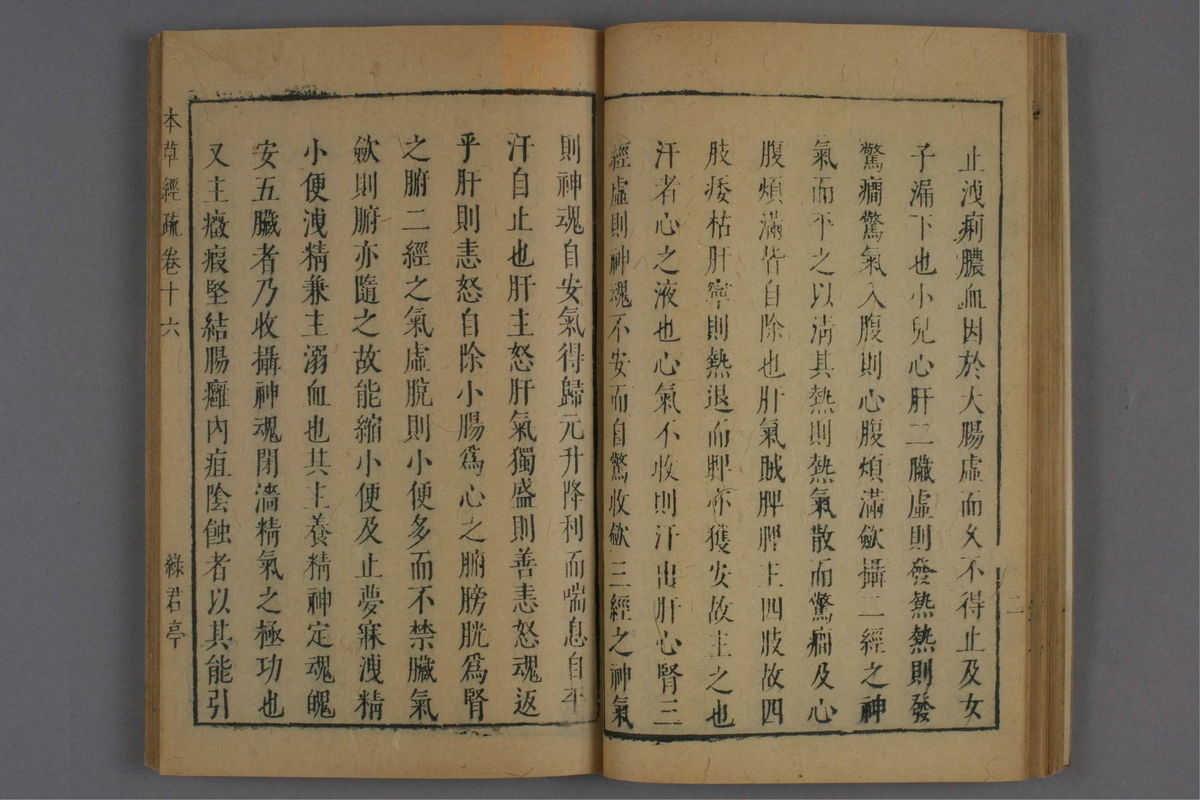 止洩痢膿血因於大腸虛而久不得止及女
子漏下也小兒心肝二臟虛則發熱熱則發
驚癎驚氣入腹則心腹煩滿斂攝二經之神
氣而平之以清其熱則熱氣散而驚癎及心
腹煩滿皆自除也肝氣賊脾脾主四肢故四
肢痿枯肝寧則熱退而脾亦獲安故主之也
汗者心之液也心氣不收則汗出肝心腎三
經虛則神魂不安而自驚收斂三經之神氣
二
則神魂自安氣得歸元升降利而喘息自平
汗自止也肝主怒肝氣獨盛則善恚怒魂返
乎肝則恚怒自除小腸爲心之腑膀胱爲腎
之腑二經之氣虛脫則小便多而不禁臟氣
斂則腑亦隨之故能縮小便及止夢寐洩精
小便洩精兼主溺血也其主養精神定魂魄
安五臟者乃收攝神魂閉濇精氣之極功也
又主癥瘕堅結腸癰內疽陰蝕者以其能引
本草經疏卷十六
綠君亭